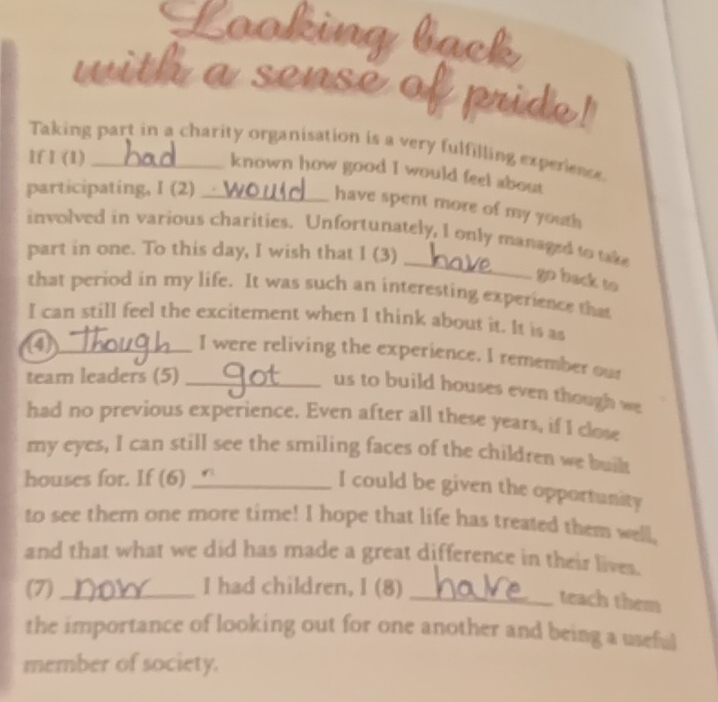 Looking back
with a sense of pride!
Taking part in a charity organisation is a very fulfilling experience.
If I (1) had known how good I would feel about
participating, I (2) would have spent more of my youth
involved in various charities. Unfortunately, I only managed to take
part in one. To this day, I wish that I (3) have go back to
that period in my life. It was such an interesting experience that
I can still feel the excitement when I think about it. It is as
(4) Though I were reliving the experience. I remember our
team leaders (5) got us to build houses even though we
had no previous experience. Even after all these years, if I close
my eyes, I can still see the smiling faces of the children we built
houses for. If (6) ____________ I could be given the opportunity
to see them one more time! I hope that life has treated them well,
and that what we did has made a great difference in their lives.
(7) now I had children, I (8) have teach them
the importance of looking out for one another and being a useful
member of society.